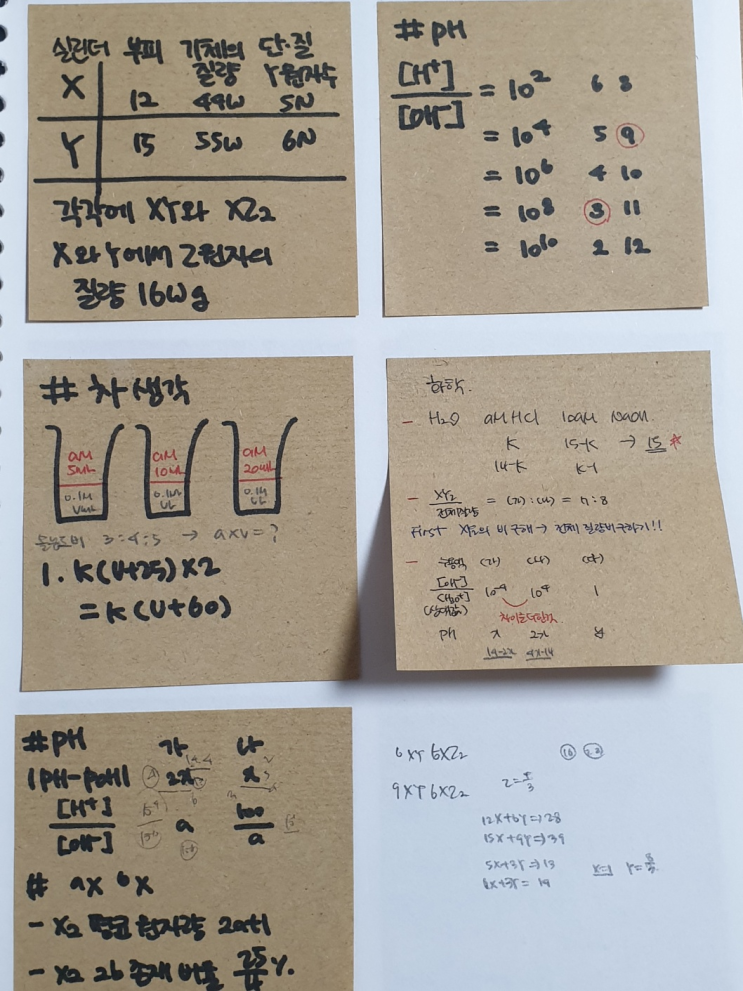 실린더 부피 기체의 질량 단.질 Y원자수
X 12 44W 5N
Y 15 55W 6N
각각에 XY와 XZ2
X와 Y에서 Z원자의
질량 16W g
# PH
[H+]/[OH-] = 10^2 6 8
= 10^4 5 9
= 10^6 4 10
= 10^8 3 11
= 10^10 2 12
# 차 생각
aM 5mL aM 10mL aM 20mL
0.1M VmL 0.1M 0.1M
몰농도비 3:4:5 → a×V=?
1. K(V+25)×2
= K(V+60)
화학.
- H2O aM HCl 10aM NaOH
K 15-K → 15
14-K K-1
- XY2/전체질량 = (가):(나) = 7:8
First XY2의 비 구해 → 전체 질량비 구하기!!
- 수용액 (가) (나) (다)
[OH-]/[H3O+] (상댓값) 10^-4 10^4 1
차이는
PH x 2x y
14-2x 4x-14
#PH 가 나
|PH-POH| 2x x
[H+]/[OH-] a 600/a
# aX bX
- X2 평균 분자량 2a+1
- X2 2b 존재 비율 25/4 Y.
6XY 6XZ2
9XY 6XZ2
12X+6Y=28
15X+9Y=39
5X+3Y=13
6X+3Y=14
X=1